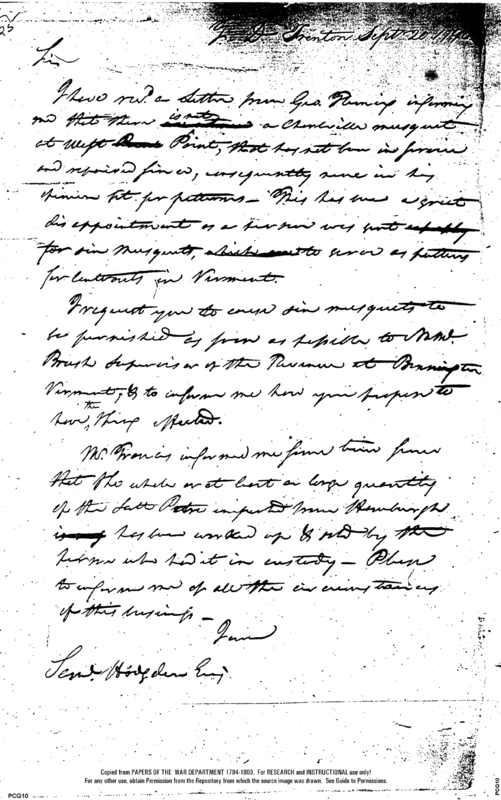 25
T. D. Trenton Septr 20 179
Sir
I have recd a Letter from Geo. Fleming informing
me that there is not a Charleville musquet
at West Point, that has not been in service
and repaired since, consequently none in his
opinion fit for patterns – This has been a great
disappointment as a person was sent
for six musquets, to serve as patterns
for contracts in Vermont.
I request you to cause six musquets to
be furnished as soon as possible to Nathl
Brush Supervisor of the Revenue at Bennington
Vermont, & to inform me how you propose to
have the thing effected.
Mr Francis informed me some time since
that the whole or at least a large quantity
of the Salt Petre imported from Hamburgh
has been worked up & sold by the
person who had it in custody – Please
to inform me of all the circumstances
of this business –
I am
Saml. Hodgdon Esq
Copied from PAPERS OF THE WAR DEPARTMENT 1784-1800. For RESEARCH and INSTRUCTIONAL use only!
For any other use, obtain Permission from the Repository from which the source image was drawn. See Guide to Permissions.
PCG10
PCG10